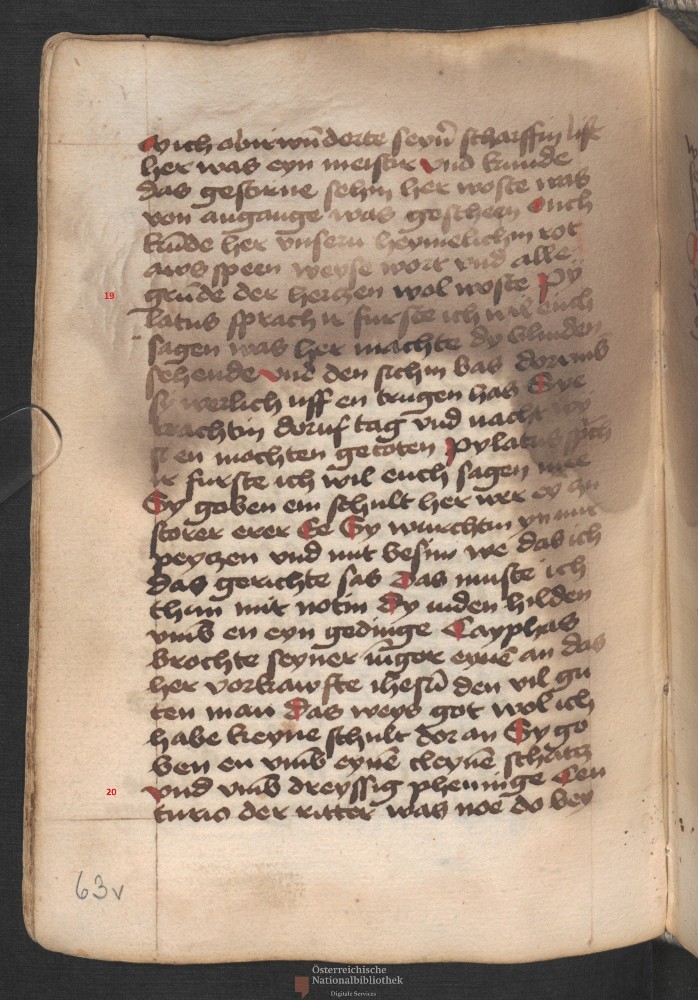 Mich obirwūderte seynͤ scharffin list
her was eyn meistir vnd kunde
das gestirne sehin her woste was
von angange was gescheen Ouch
kūde her vnsern heymelichin rot
aws speen weyse wort vnd alle
19 grūde der herczen wol woste Py
latus sprach ir furste ich wil euch
sagen was her machte dy blinden
sehende vnd den sichin bas dorumb
sy werlich uff en trugen has Sye
trachtin doruf tag vnd nacht wy
si en mochten getoten Pylatus spͤch
ir furste ich wil euch sagen mee
Sy goben em schult her wer ey
storer erer Ee Sy wurchtin yn mit
peyczen vnd mit besim we das ich
das gerichte sas Das muste ich
thun mit notin Dy iuden hilden
vmb en eyn gedinge Cayphas
brochte seyner iūger eynē an das
her vorkawfte ihesū den vil gu
ten man Das weys got wol ich
habe keyne schult dor an Sy go
ben en vmb eynē cleynē schatcz
20 vnd vmb dreyssig phennige Cen
turio der ritter was noe do bey
63v
Österreichische
Nationalbibliothek
Digitale Services